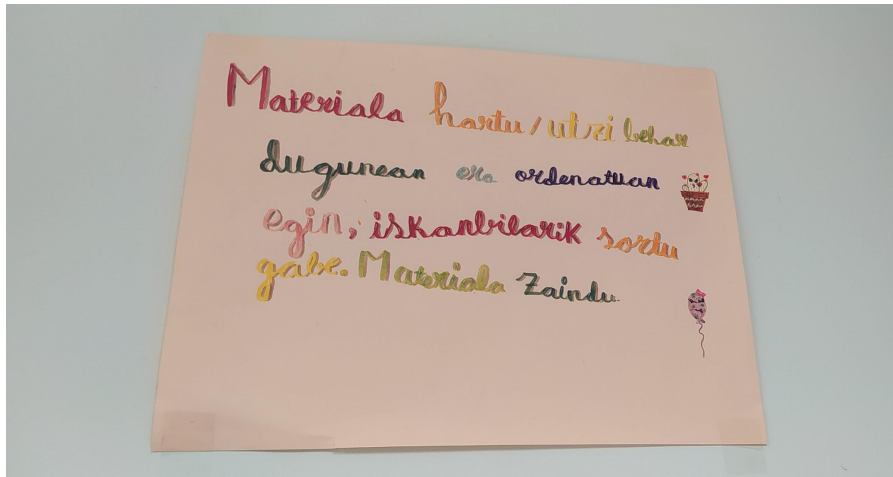 Materiala hartu/utzi behar
dugunean era ordenatuan
egin, iskanbilarik sortu
gabe. Materiala Zaindu.